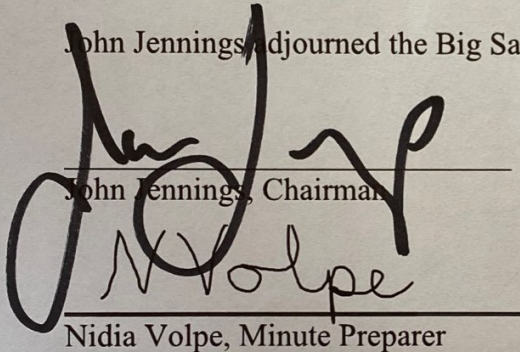 John Jennings adjourned the Big Sa
John Jennings, Chairman
N Volpe
Nidia Volpe, Minute Preparer